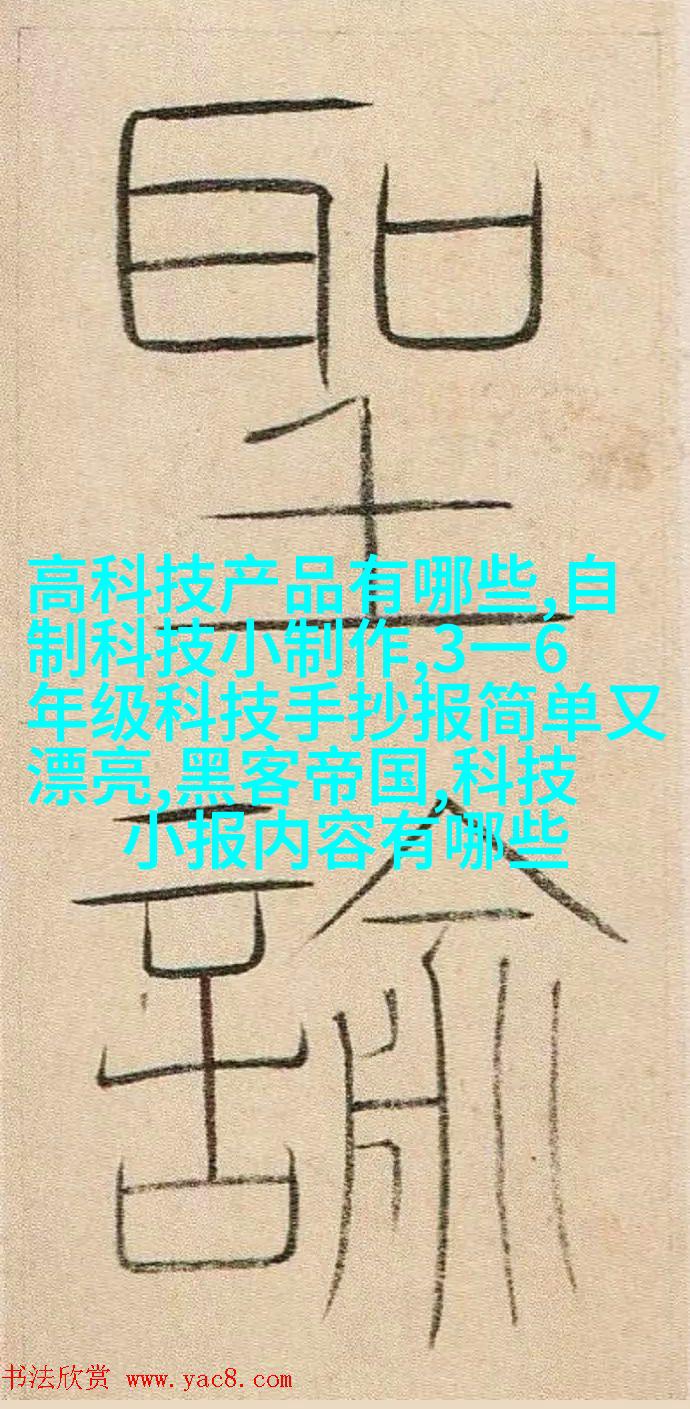 聖
諭
高科技产品有哪些,自
制科技小制作,3一6
年级科技手抄报简单又
漂亮,黑客帝国,科技
小报内容有哪些
书法欣赏 www.yac8.com